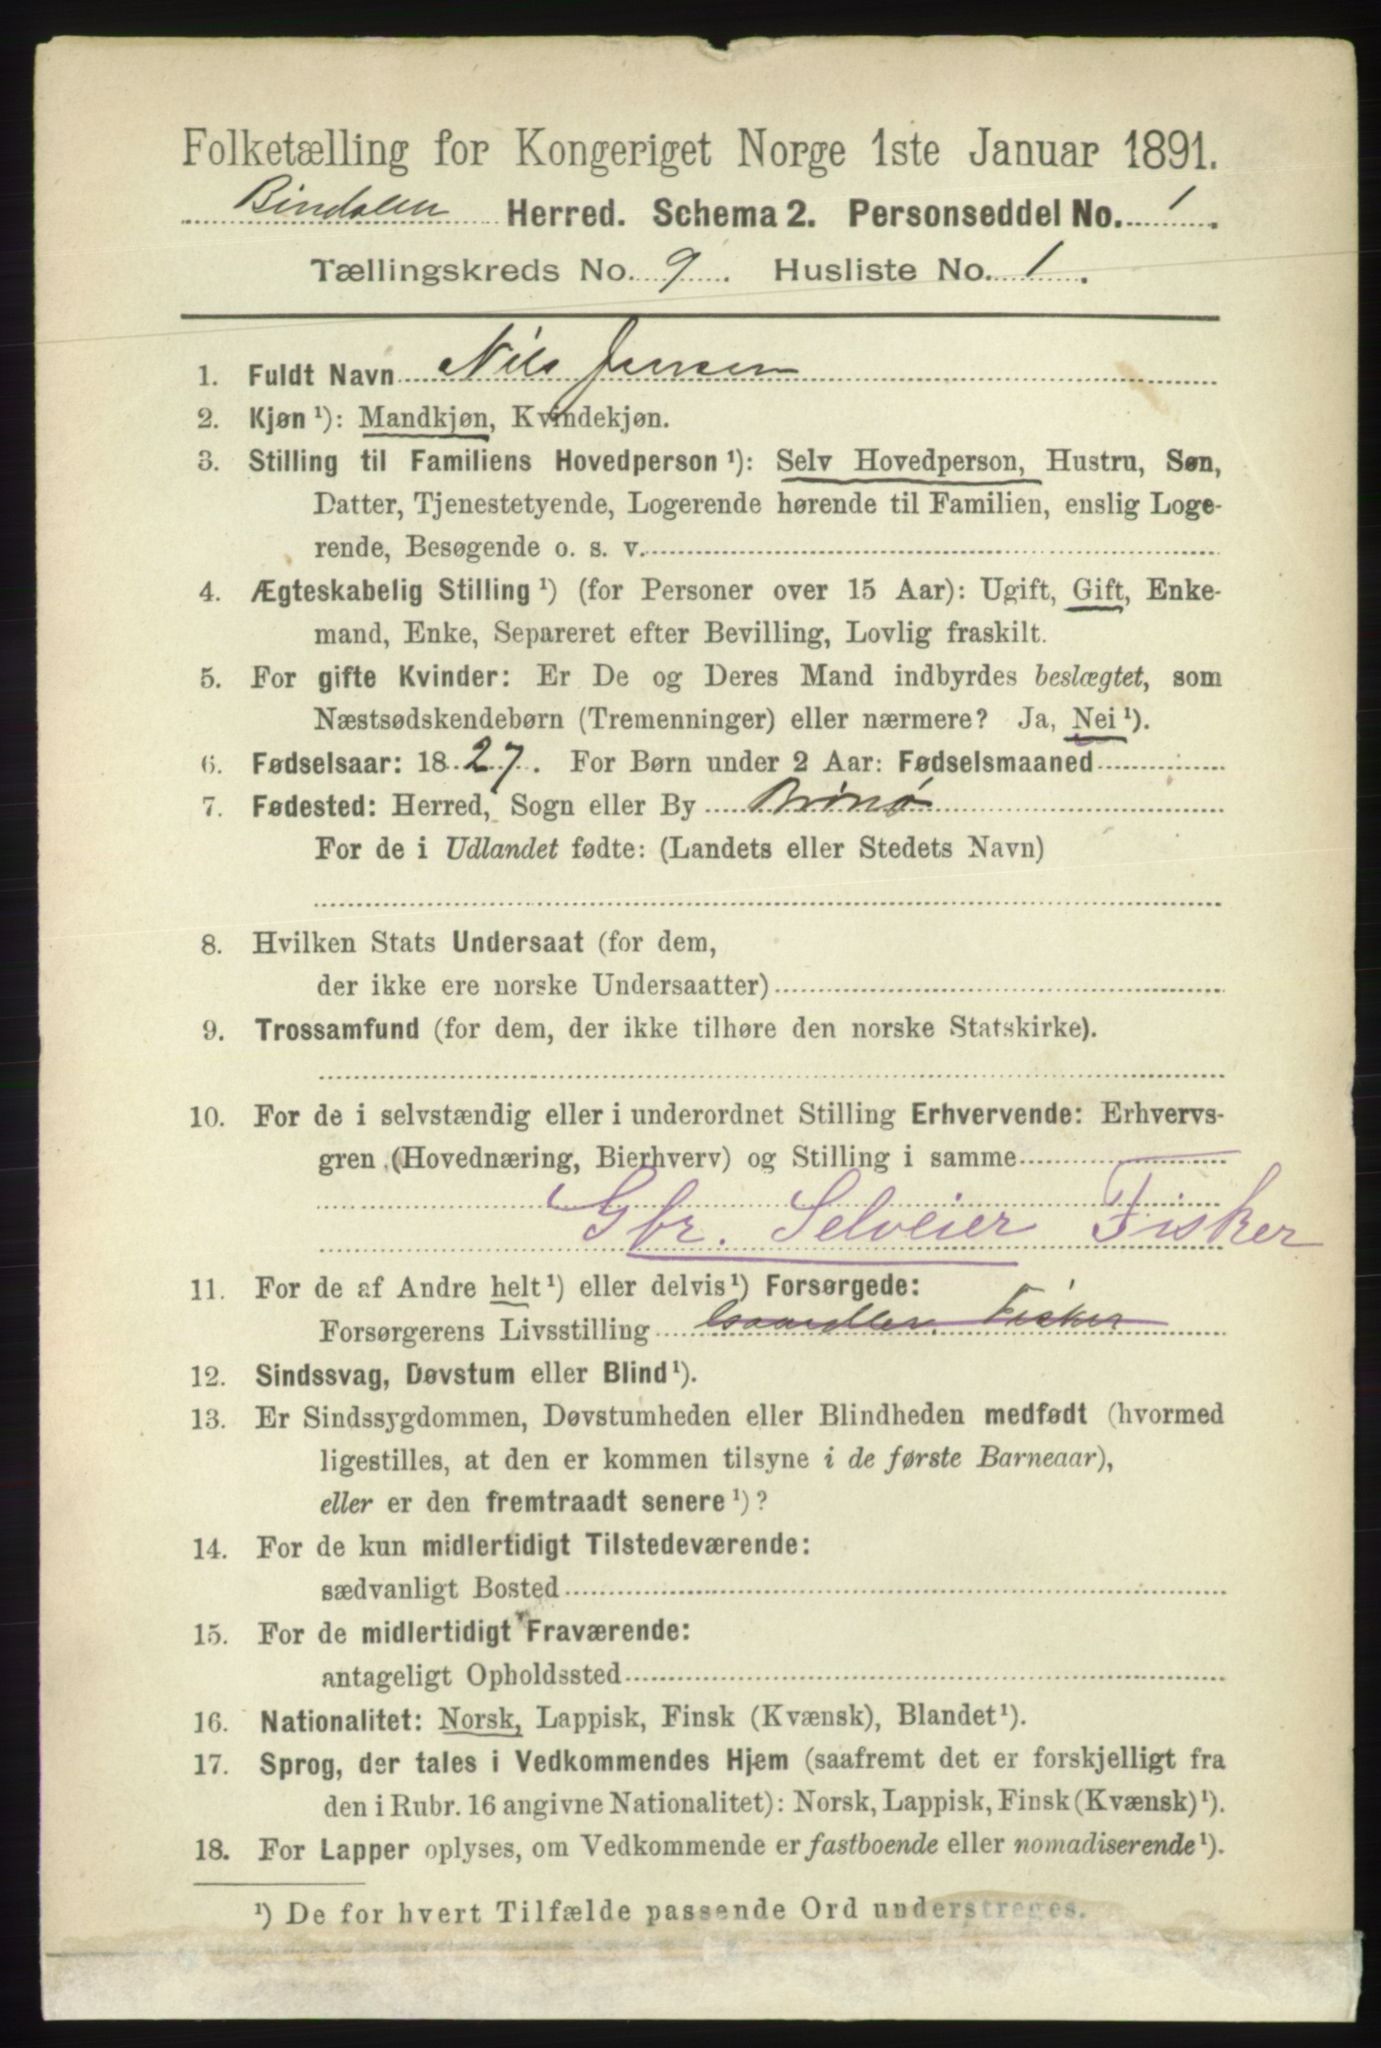 Folketælling for Kongeriget Norge 1ste Januar 1891.
Bindalen Herred. Schema 2. Personseddel No. 1.
Tællingskreds No. 9. Husliste No. 1.
1. Fuldt Navn Nils Jensen
2. Kjøn ¹): Mandkjøn, Kvindekjøn.
3. Stilling til Familiens Hovedperson ¹): Selv Hovedperson, Hustru, Søn,
Datter, Tjenestetyende, Logerende hørende til Familien, enslig Loge-
rende, Besøgende o. s. v.
4. Ægteskabelig Stilling ¹) (for Personer over 15 Aar): Ugift, Gift, Enke-
mand, Enke, Separeret efter Bevilling, Lovlig fraskilt.
5. For gifte Kvinder: Er De og Deres Mand indbyrdes beslægtet, som
Næstsødskendebørn (Tremenninger) eller nærmere? Ja, Nei ¹).
6. Fødselsaar: 1827. For Børn under 2 Aar: Fødselsmaaned
7. Fødested: Herred, Sogn eller By Brønø
For de i Udlandet fødte: (Landets eller Stedets Navn)
8. Hvilken Stats Undersaat (for dem,
der ikke ere norske Undersaatter)
9. Trossamfund (for dem, der ikke tilhøre den norske Statskirke).
10. For de i selvstændig eller i underordnet Stilling Erhvervende: Erhvervs-
gren (Hovednæring, Bierhverv) og Stilling i samme
Gbr. Selveier Fisker
11. For de af Andre helt ¹) eller delvis ¹) Forsørgede:
Forsørgerens Livsstilling Fisker
12. Sindssvag, Døvstum eller Blind ¹).
13. Er Sindssygdommen, Døvstumheden eller Blindheden medfødt (hvormed
ligestilles, at den er kommen tilsyne i de første Barneaar),
eller er den fremtraadt senere ¹)?
14. For de kun midlertidigt Tilstedeværende:
sædvanligt Bosted
15. For de midlertidigt Fraværende:
antageligt Opholdssted
16. Nationalitet: Norsk, Lappisk, Finsk (Kvænsk), Blandet ¹).
17. Sprog, der tales i Vedkommendes Hjem (saafremt det er forskjelligt fra
den i Rubr. 16 angivne Nationalitet): Norsk, Lappisk, Finsk (Kvænsk) ¹).
18. For Lapper oplyses, om Vedkommende er fastboende eller nomadiserende ¹).
¹) De for hvert Tilfælde passende Ord understreges.